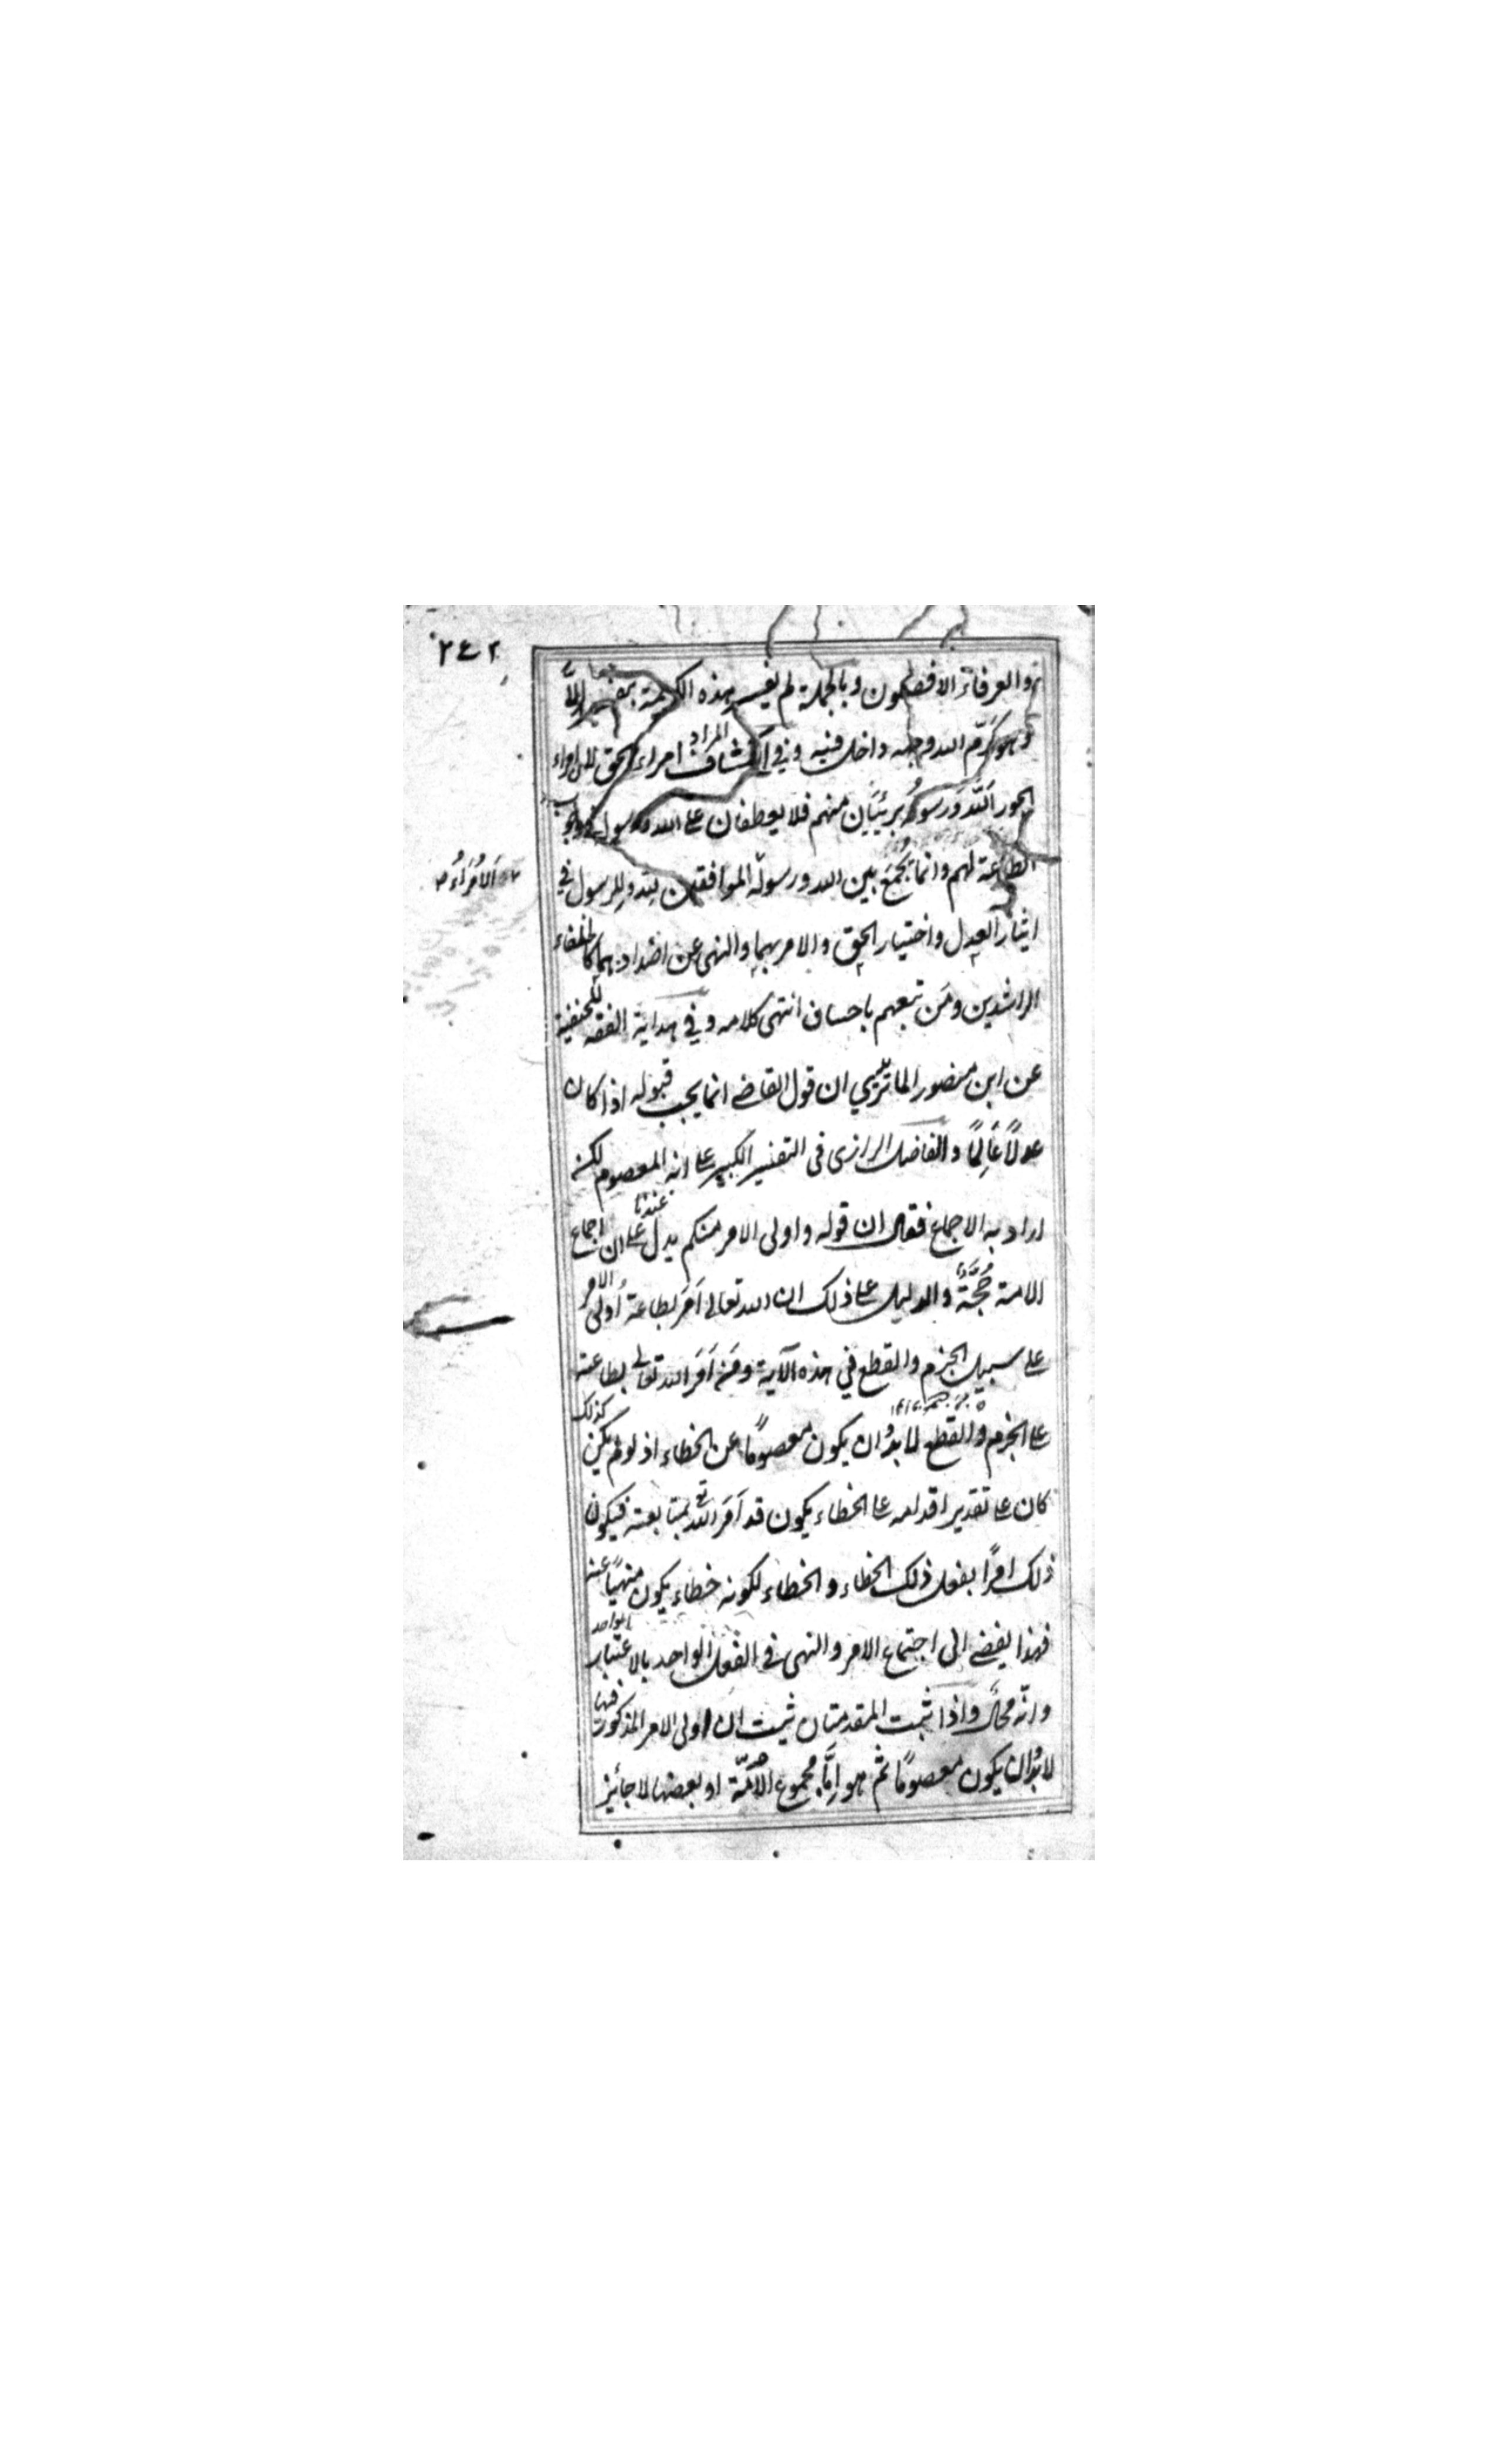 ٢٤٢
والعرفاء الافضلون وبالجملة لم يفسر هذه الكريمة بمفسر الا
وهو كرّم الله وجهه داخل فيه وفي الكشاف المراد امراء الحق لان امراء
الجور اللّٰه ورسوله بريئان منهم فلا يعطفان على الله ورسوله في وجوب
الطاعة لهم وانما يُجمع بين الله ورسوله الموافقين لله وللرسول في
الاُمَرَاءُ
ايثار العدل واختيار الحق والامر بهما والنهى عن اضدادهما كالخلفاء
الراشدين ومَن تبعهم باحسان انتهى كلامه وفي هداية الفقه للحنفية
عن ابن منصور الماتريدي ان قول القاضي انما يجب قبوله اذا كان
عدلاً عَالِمًا والفاضل الرازى فى التفسير الكبير على انه المعصوم لكنه
اراد به الاجماع فقال ان قوله واولى الامر منكم يدل عندنا على ان اجماع
الامة حُجَّة والدليل على ذلك ان الله تعالى اَمَرَ بطاعة اُولى الامر
على سبيل الجزم والقطع في هذه الآية ومَن اَمَرَ الله تعالى بطاعته
على الجزم والقطع لا بدّ ان يكون معصومًا عن الخطاء اذ لو لم يكن كذلك
كان على تقدير اقدامه على الخطاء يكون قد اَمَرَ الله تع بمتابعته فيكون
ذلك امرًا بفعل ذلك الخطاء والخطاء لكونه خطاء يكون منهيًا عنه
فهذا يفضي الى اجتماع الامر والنهى في الفعل الواحد بالاعتبار الواحد
وانّه محال واذا ثبت المقدمتان ثبت ان اولى الامر المذكورة فيها
لا بدّ ان يكون معصومًا ثم هو اِمَّا مجموع الامّة او بعضها لا جائز